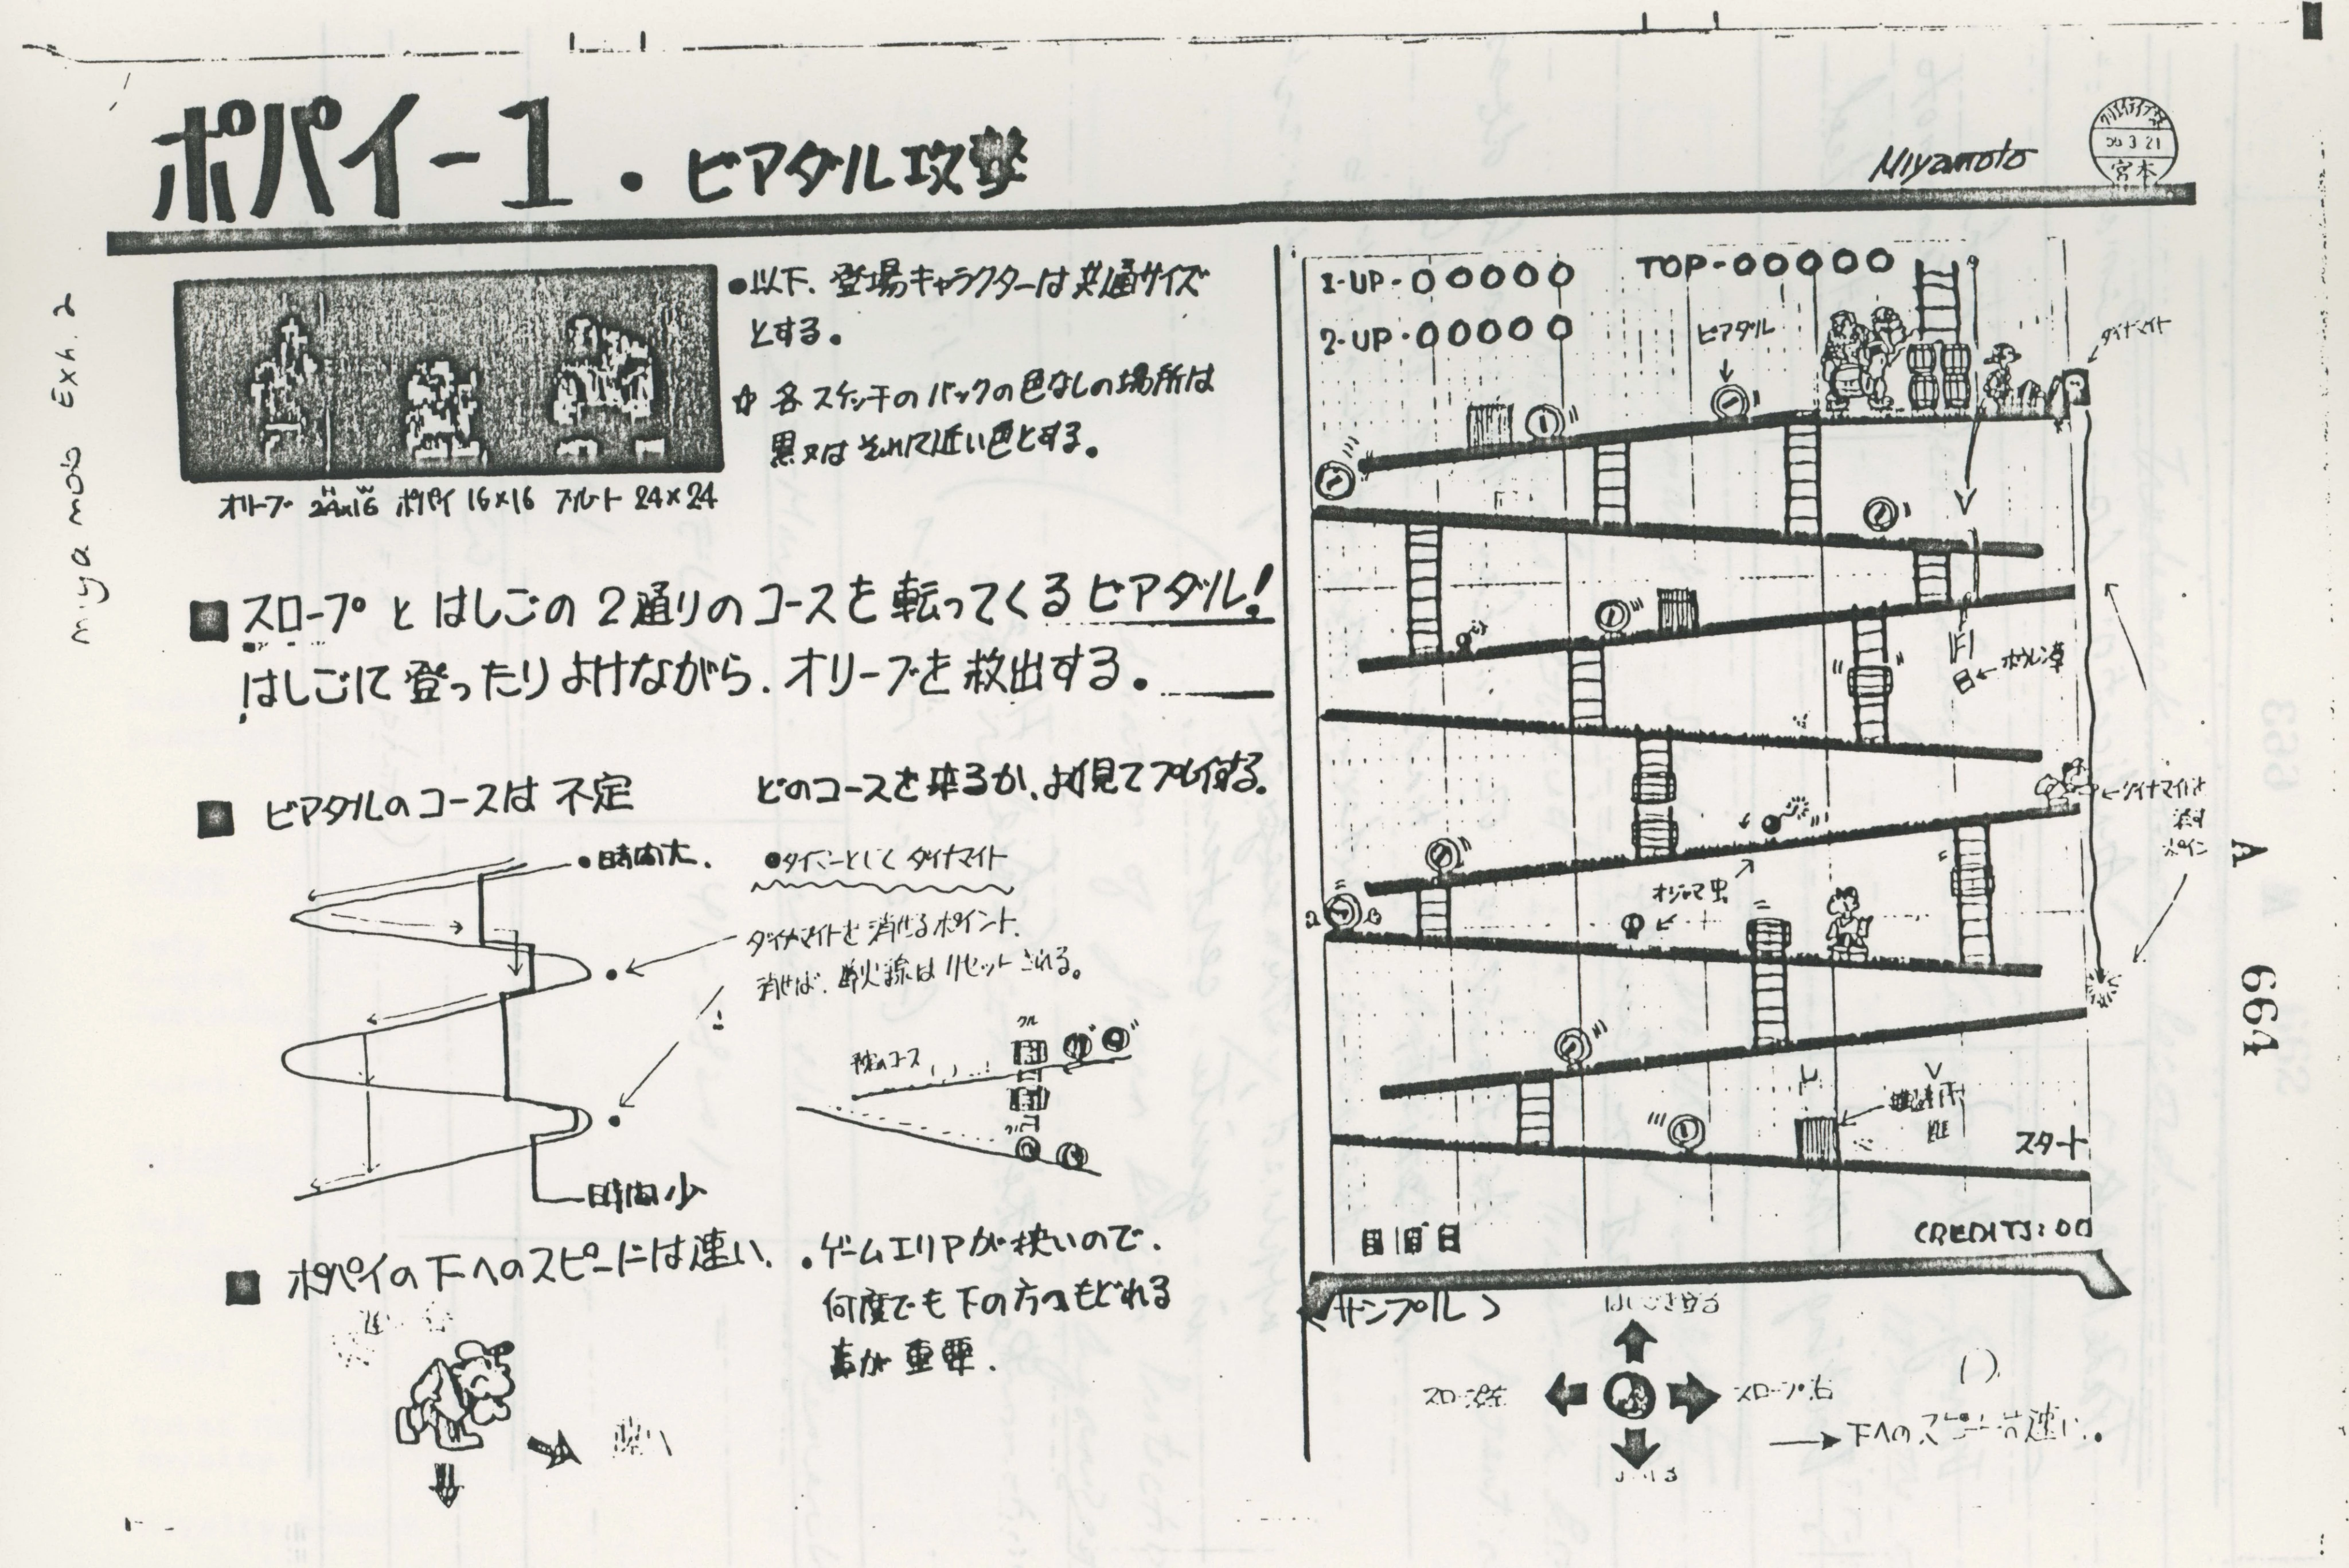 ポパイ-1・ビアダル攻撃
Miyamoto
3 21
宮本
miyamoto Exh. 2
●以下、登場キャラクターは共通サイズ
とする。
☆各スケッチのバックの色なしの場所は
黒又はそれに近い色とする。
オリーブ 24×16 ポパイ 16×16 ブルート 24×24
■スロープとはしごの2通りのコースを転ってくるビアダル!
はしごに登ったりよけながら、オリーブを救出する。
■ビアダルのコースは不定 どのコースを来るか、よく見てプレイする。
●時間大.
●タイマーとして ダイナマイト
ダイナマイトを消せるポイント.
消せば、導火線はリセットされる。
コース
時間少
■ポパイの下へのスピードは速い.
・ゲームエリアが狭いので、
何度でも下の方へもどれる
事が重要.
1-UP-00000 TOP-00000
2-UP-00000
ビアダル
ダイナマイト
ホウレン草
ダイナマイトを
消す
ポイント
オジャマ虫
スタート
CREDITS:00
<サンプル>
はしごを登る
スロープ左
スロープ右
→下へのスピードは速い.
A
664